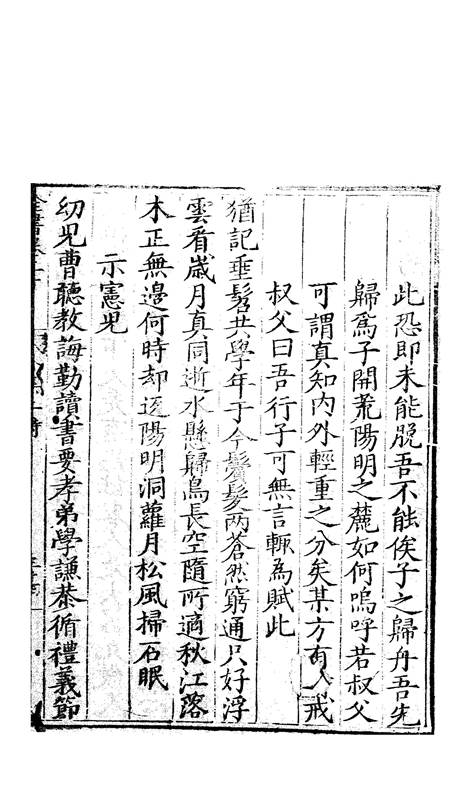 此恐即未能脫吾不能俟子之歸舟吾先
歸為子開荒陽明之麓如何嗚呼若叔父
可謂真知內外輕重之分矣某方有入戒
叔父曰吾行子可無言輒為賦此
猶記垂髫共學年于今鬢髮兩蒼然窮通只好浮
雲看歲月真同逝水懸歸鳥長空隨所適秋江落
木正無邊何時却返陽明洞蘿月松風掃石眠
示憲兒
幼兒曹聽教誨勤讀書要孝弟學謙恭循禮義節